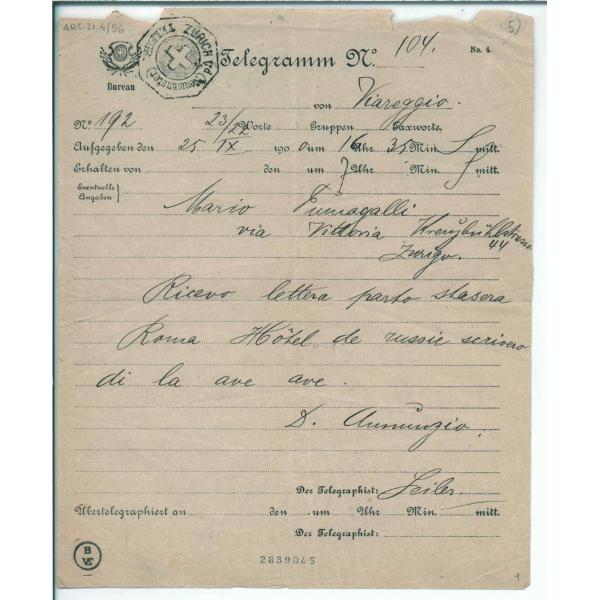 ARC.21.4/56
(5)
Telegramm Nº 104.
No. 4.
Bureau
von Viareggio.
Nº 192 23/22 Worte Gruppen Taxworte.
Aufgegeben den 25 IX 1900 um 16 Uhr 35 Min. S mitt.
Erhalten von den um 7 Uhr Min. mitt.
Eventuelle
Angaben
Mario Fumagalli
via Vittoria Kreuzbühlstrasse
44
Zurigo.
Ricevo lettera parto stasera
Roma Hôtel de russie scrivero
di la ave ave.
D. Annunzio.
Der Telegraphist: Seiler
Übertelegraphiert an den um Uhr Min. mitt.
Der Telegraphist:
B
2839045
1